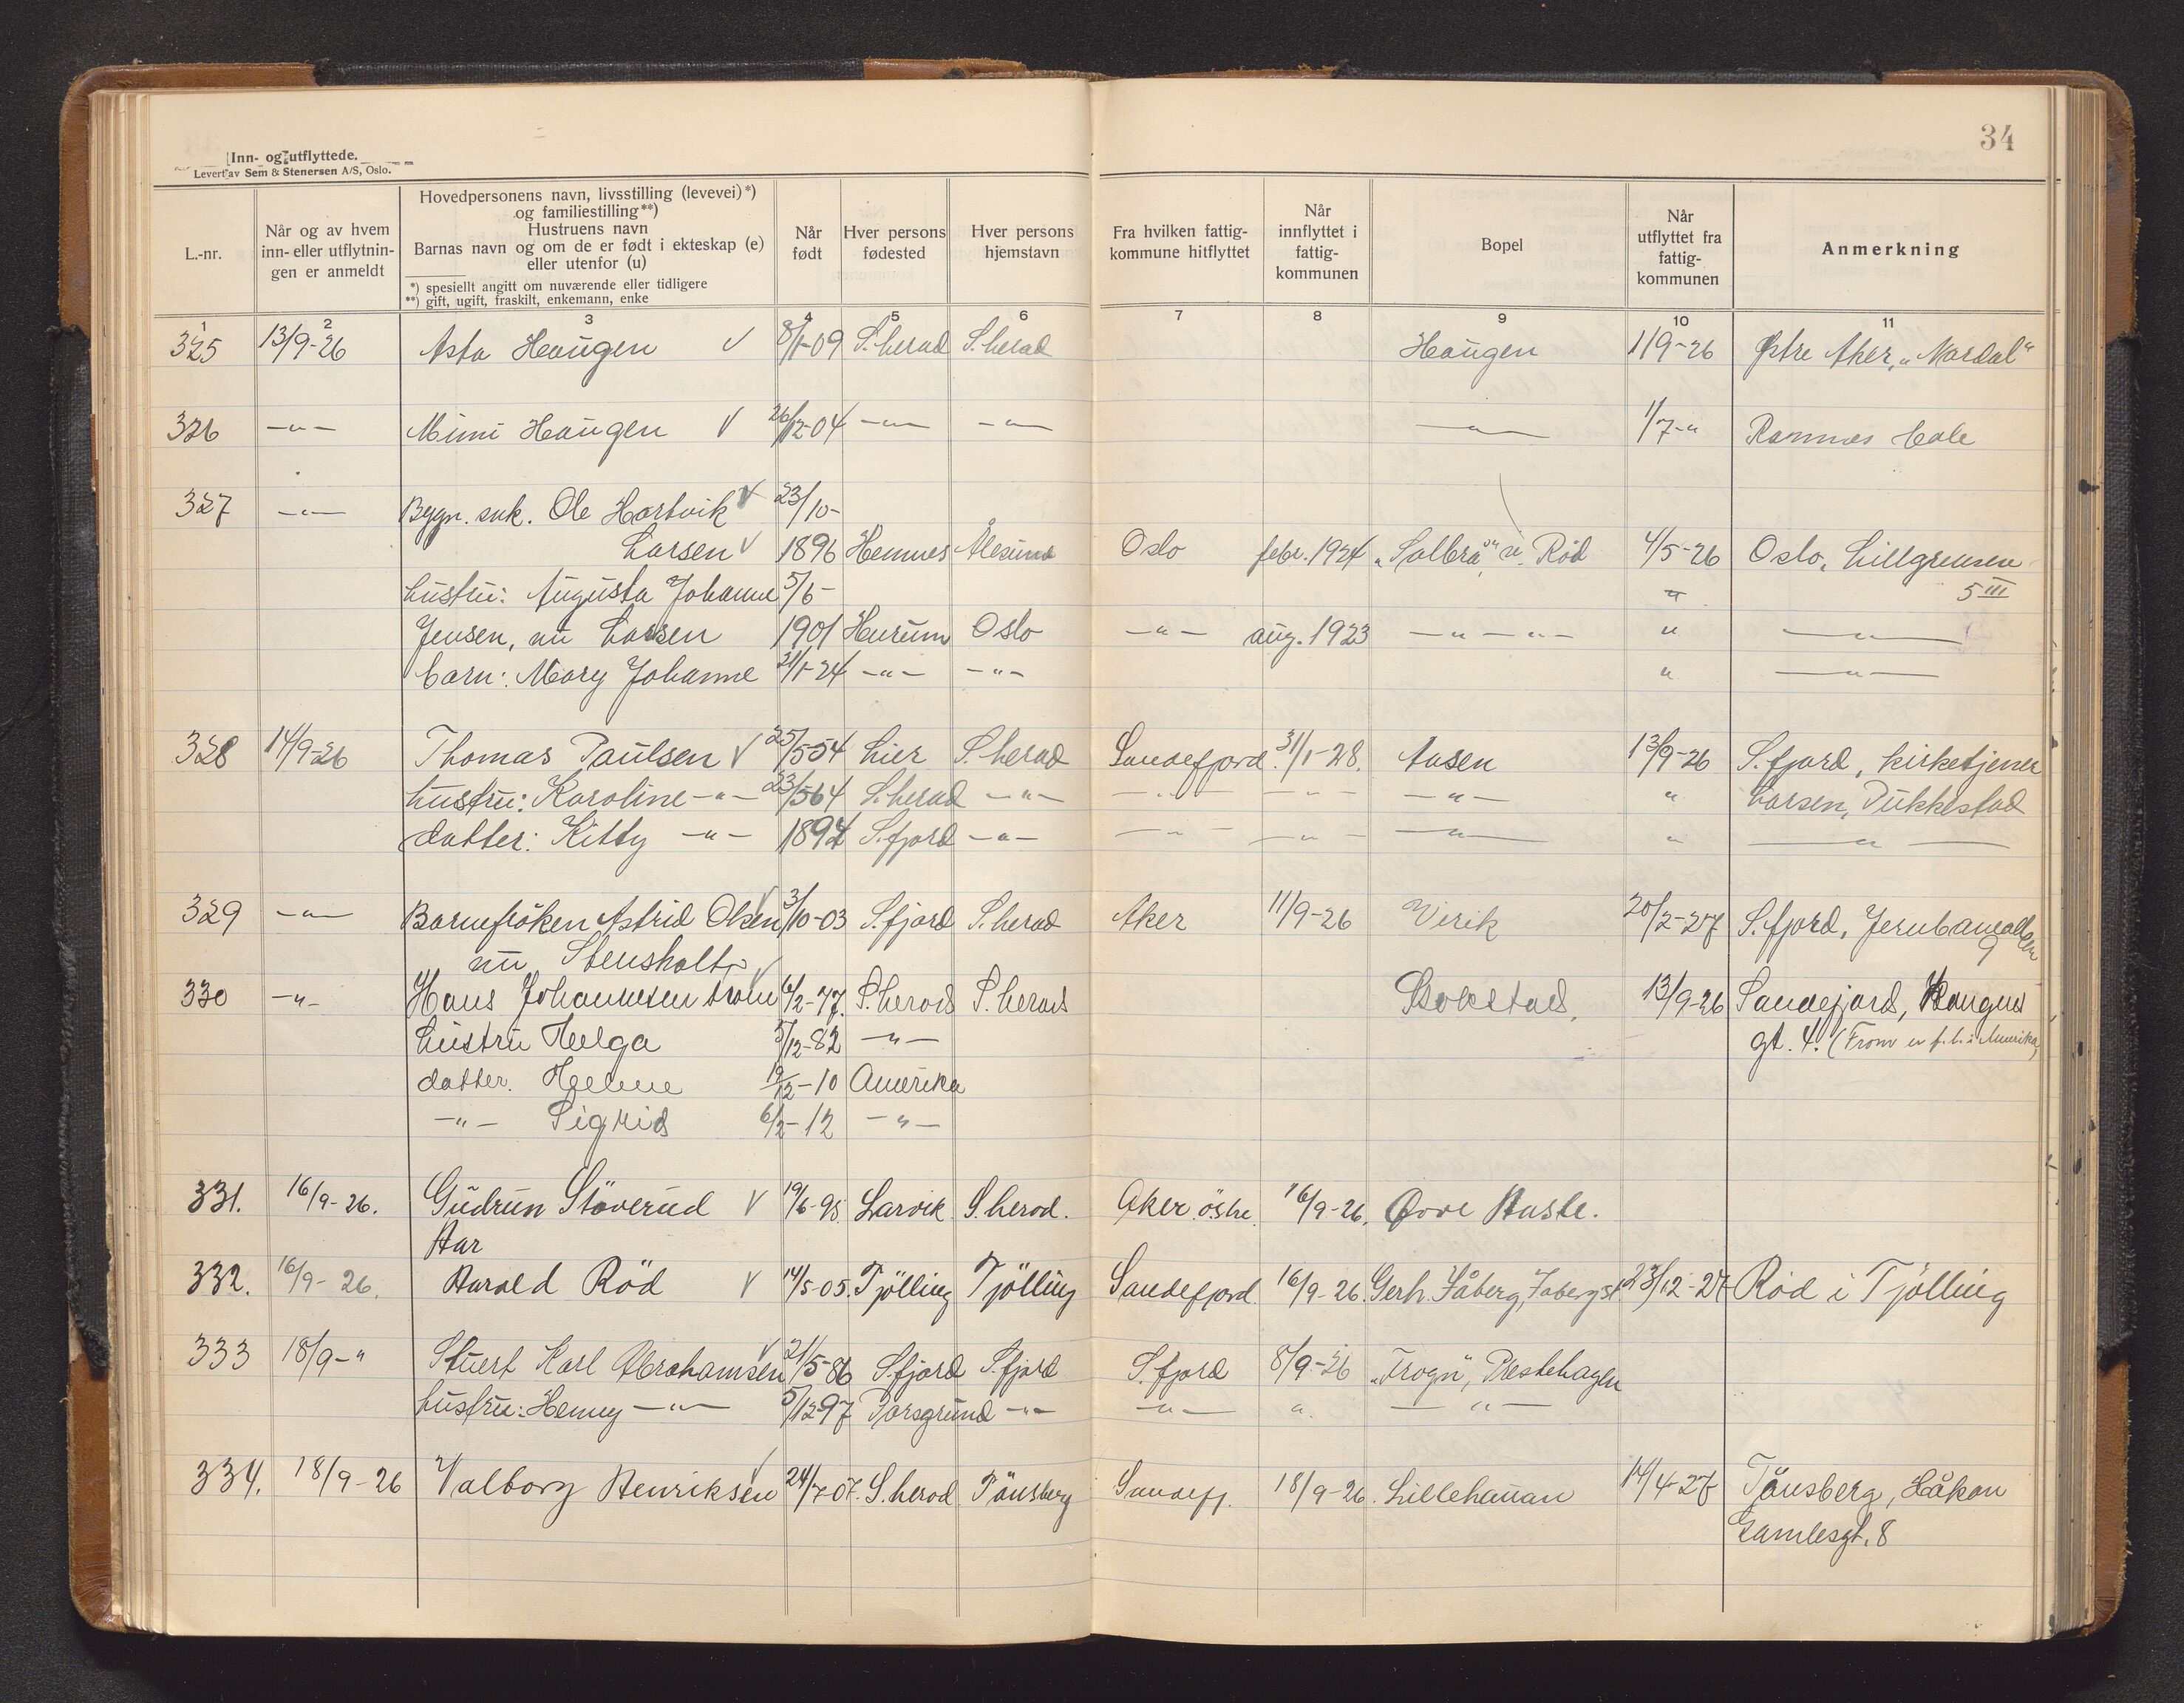 Inn- og utflyttede.
Levert av Sem & Stenersen A/S, Oslo.
34
L.-nr.
Når og av hvem
inn- eller utflytnin-
gen er anmeldt
Hovedpersonens navn, livsstilling (levevei)*)
og familiestilling**)
Hustruens navn
Barnas navn og om de er født i ekteskap (e)
eller utenfor (u)
*) spesiellt angitt om nuværende eller tidligere
**) gift, ugift, fraskilt, enkemann, enke
Når
født
Hver persons
fødested
Hver persons
hjemstavn
Fra hvilken fattig-
kommune hitflyttet
Når
innflyttet i
fattig-
kommunen
Bopel
Når
utflyttet fra
fattig-
kommunen
Anmerkning
1 2 3 4 5 6 7 8 9 10 11
325 13/9-26 Asta Haugen 8/1-09 S.herad S.herad Haugen 1/9-26 Østre Aker, „Nordal"
326 -"- Mimi Haugen 26/12-04 -"- -"- -"- 1/7-" Ramnes
327 -"- Bygn. snk. Ole Hartvik 23/10-
Larsen 1896 Hemnes Ålesund Oslo febr. 1924 „Solbrå" v. Rød 4/5-26 Oslo, Lillgrensen
hustru: Augusta Johanne 5/6- " 5 III
Jensen, nu Larsen 1901 Hurum Oslo -"- aug. 1923 -"- -"- " -"-
barn: Mary Johanne 31/1-24 -"- -"- " -"-
328 14/9-26 Thomas Paulsen 25/5 54 Lier S.herad Sandefjord 31/1-28. Aasen 13/9-26 S.fjord, kirketjener
hustru: Karoline -"- 23/5 64 S.herad -"- -"- -"- -"- " Larsen, Pukkestad
datter: Kitty -"- 1894 S.fjord -"- -"- -"- -"- " -"-
329 -"- Barnefröken Astrid Olsen 3/10-03 S.fjord S.herad Aker 11/9-26 Virik 20/2-27 S.fjord, Jernbanealleen
nu Stensholt 9
330 -"- Hans Johannesen From 4/2-77. S.herad S.herad Bokstad, 13/9-26 Sandefjord, Kongens
hustru Helga 5/12-82 -"- gt. 4. (From er f.t. i Amerika)
datter. Helene 19/12-10 Amerika
-"- Sigrid 6/2-12 -"-
331. 16/9-26. Gudrun Stöverud 19/6-95 Larvik S.herad. Aker östre. 16/9-26. Övre Hasle.
Har
332. 16/9-26. Harald Röd 14/5-05. Tjölling Tjölling Sandefjord 16/9-26. Gerh. Jåberg, Jabergst 23/12-27 Röd i Tjölling
333 18/9-" Stuert Karl Abrahamsen 21/5-86 S.fjord S.fjord S.fjord 8/9-26 „Frogn", Prestehagen
hustru: Henny -"- 5/12 97 Porsgrund -"- -"- " -"-
334. 18/9-26 Valborg Henriksen 24/7-07. S.herad Tönsberg Sandefj. 18/9-26. Lillehauan 14/4-27 Tønsberg, Håkon
Gamlesgt. 8